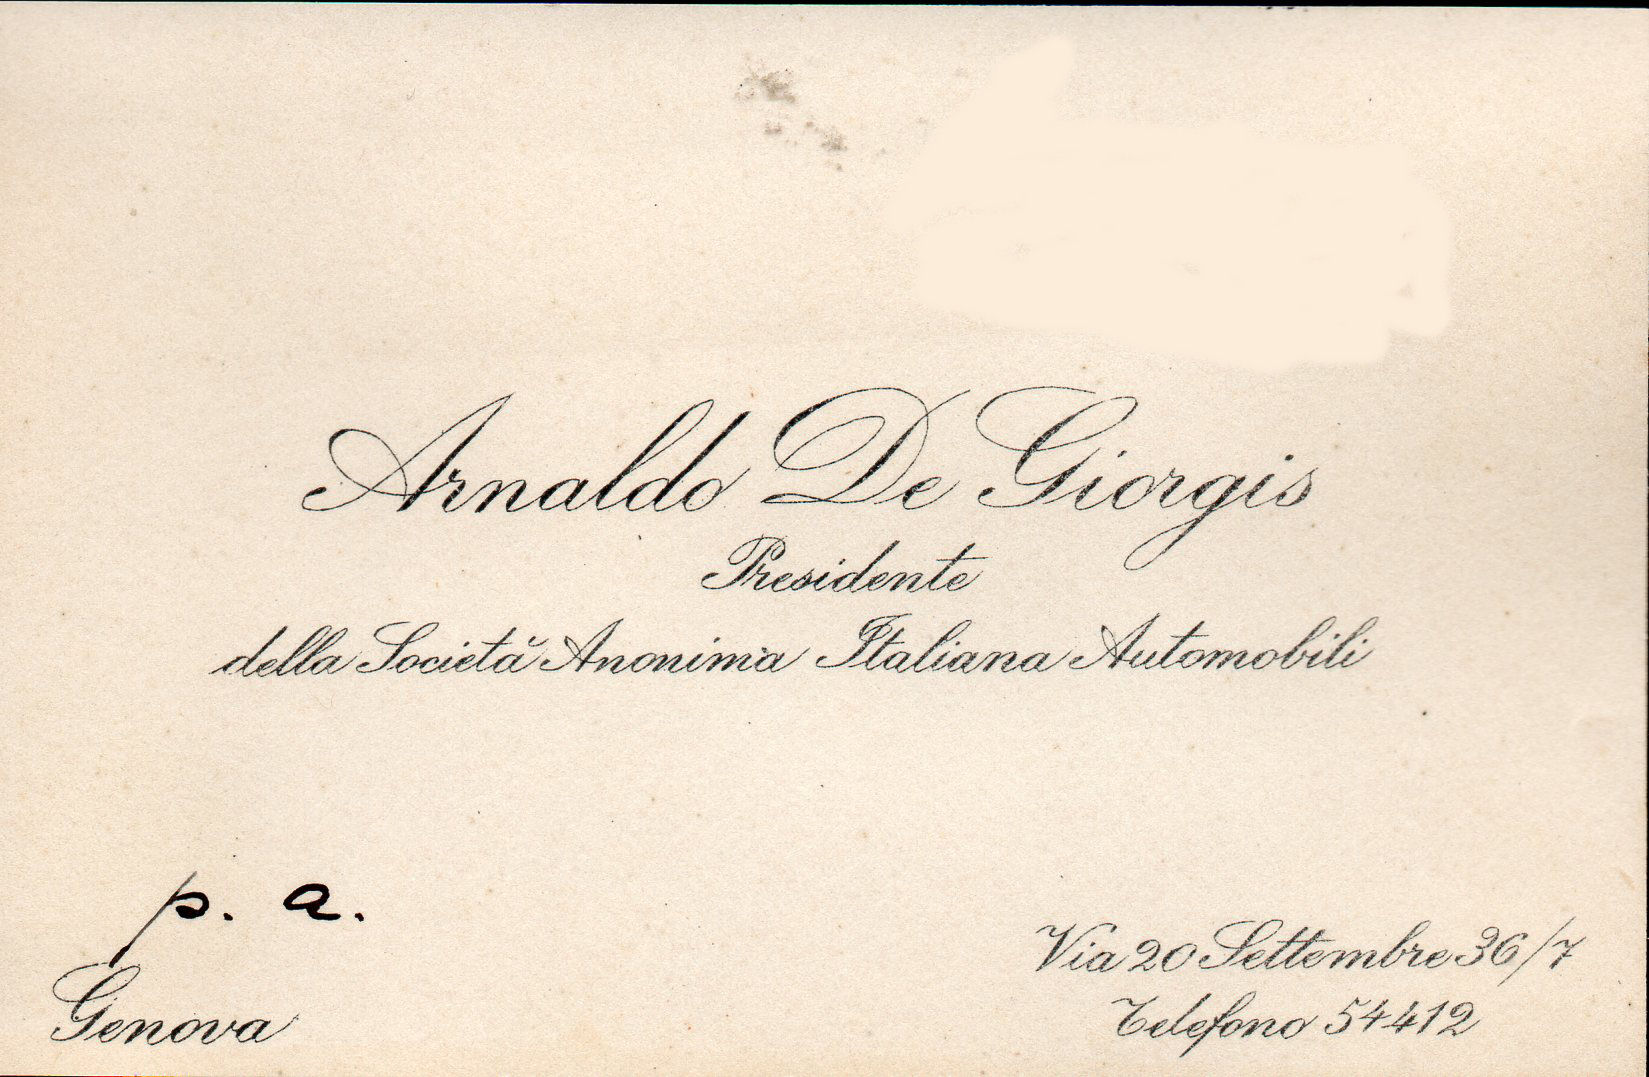 Arnaldo De Giorgis
Presidente
della Società Anonima Italiana Automobili
p. a.
Genova
Via 20 Settembre 36/7
Telefono 54412